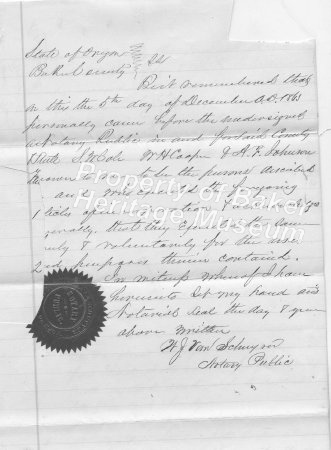 State of Oregon
Baker County } SS
Be it remembered that
on this the 5th day of December A.D. 18
personally came before the undersigned
a Notary Public in and for said County
State S. W. Cole W H Cooper & A. F. Johnson
known to to be the persons described
and who executed the foregoing
that they executed the same
& voluntarily for the uses
and purposes therein contained.
In witness whereof I have
hereunto Set my hand and
Notarial Seal the day & year
above written
W. J. Van Schuyver
Notary Public
Property of Baker
Heritage Museum